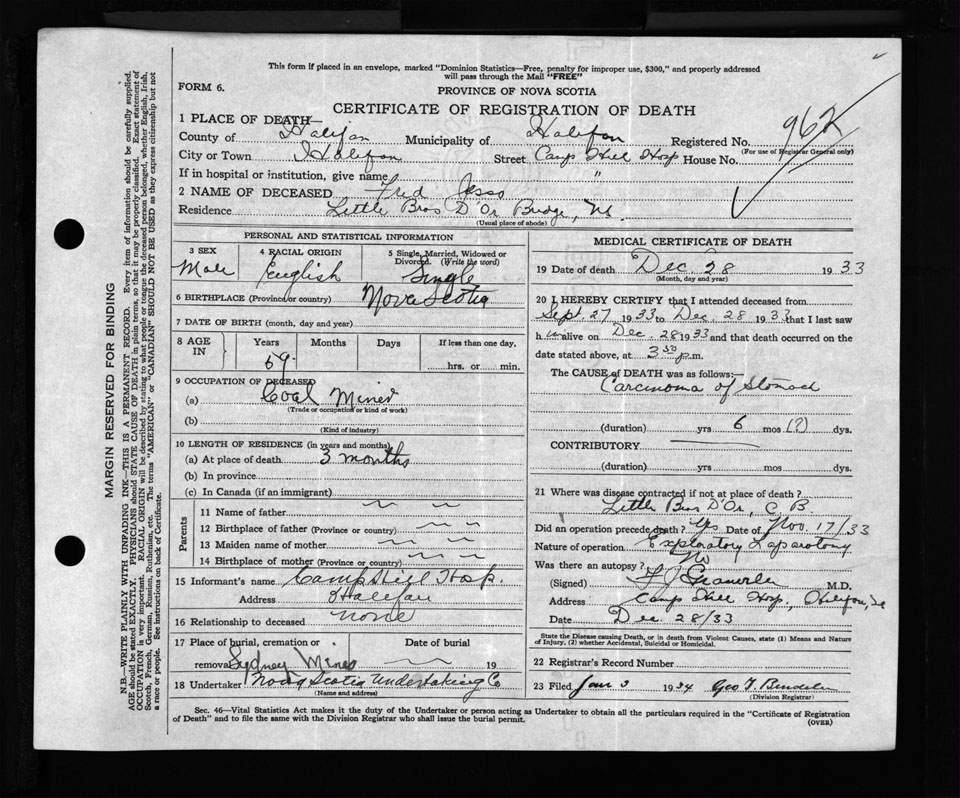 This form if placed in an envelope, marked "Dominion Statistics—Free, penalty for improper use, $300," and properly addressed
will pass through the Mail "FREE"
FORM 6.
PROVINCE OF NOVA SCOTIA
CERTIFICATE OF REGISTRATION OF DEATH
1 PLACE OF DEATH—
County of Halifax Municipality of Halifax Registered No. 962
(For use of Registrar General only)
City or Town Halifax Street Camp Hill Hosp House No.
If in hospital or institution, give name "
2 NAME OF DECEASED Fred Jesso
Residence Little Bras D'Or Bridge, NS.
(Usual place of abode)
PERSONAL AND STATISTICAL INFORMATION
3 SEX
Male
4 RACIAL ORIGIN
English
5 Single, Married, Widowed or
Divorced. (Write the word)
Single
6 BIRTHPLACE (Province or country) Nova Scotia
7 DATE OF BIRTH (month, day and year)
8 AGE IN
Years Months Days If less than one day,
59 hrs. or min.
9 OCCUPATION OF DECEASED
(a) Coal Miner
(Trade or occupation or kind of work)
(b)
(Kind of industry)
10 LENGTH OF RESIDENCE (in years and months)
(a) At place of death 3 months
(b) In province
(c) In Canada (if an immigrant)
Parents
11 Name of father
12 Birthplace of father (Province or country)
13 Maiden name of mother
14 Birthplace of mother (Province or country)
15 Informant's name Camp Hill Hosp.
Address Halifax
16 Relationship to deceased none
17 Place of burial, cremation or Date of burial
removal Sydney Mines 19
18 Undertaker Nova Scotia Undertaking Co
(Name and address)
MEDICAL CERTIFICATE OF DEATH
19 Date of death Dec. 28 1933
(Month, day and year)
20 I HEREBY CERTIFY that I attended deceased from
Sept. 27 1933 to Dec. 28 1933 that I last saw
him alive on Dec. 28 1933 and that death occurred on the
date stated above, at 3 50 p.m.
The CAUSE OF DEATH was as follows:—
Carcinoma of Stomach
(duration) yrs 6 mos (?) dys.
CONTRIBUTORY
(duration) yrs. mos. dys.
21 Where was disease contracted if not at place of death?
Little Bras D'Or, C. B.
Did an operation precede death? Yes Date of Nov. 17/33
Nature of operation Exploratory Laparotomy
Was there an autopsy? No
(Signed) M.D.
Address Camp Hill Hosp., Halifax, NS
Date Dec. 28/33
State the Disease causing Death, or in death from Violent Causes, state (1) Means and Nature
of Injury, (2) whether Accidental, Suicidal or Homicidal.
22 Registrar's Record Number
23 Filed Jan 3 1934 Geo
(Division Registrar)
Sec. 46—Vital Statistics Act makes it the duty of the Undertaker or person acting as Undertaker to obtain all the particulars required in the "Certificate of Registration
of Death" and to file the same with the Division Registrar who shall issue the burial permit.
(OVER)
MARGIN RESERVED FOR BINDING
N.B.—WRITE PLAINLY WITH UNFADING INK—THIS IS A PERMANENT RECORD. Every item of information should be carefully supplied.
AGE should be stated EXACTLY. PHYSICIANS should STATE CAUSE OF DEATH in plain terms, so that it may be properly classified. Exact statement of
OCCUPATION is very important. RACIAL ORIGIN will be described by stating to what people or tongue the deceased person belonged, whether English, Irish,
Scotch, French, German, Russian, Ruthenian, etc. The terms "AMERICAN" or "CANADIAN" SHOULD NOT BE USED as they express citizenship but not
a race or people. See instructions on back of Certificate.